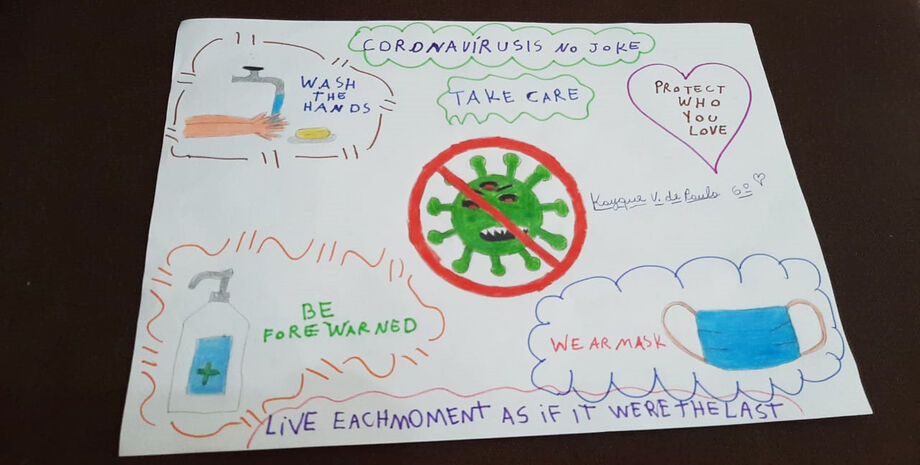 CORONAVÍRUSIS NO JOKE
WASH
THE
HANDS
TAKE CARE
PROTECT
WHO
YOU
LOVE
Kayque V. de Paula 6º
BE
FOREWARNED
WEARMASK
LIVE EACHMOMENT AS IF IT WERETHELAST